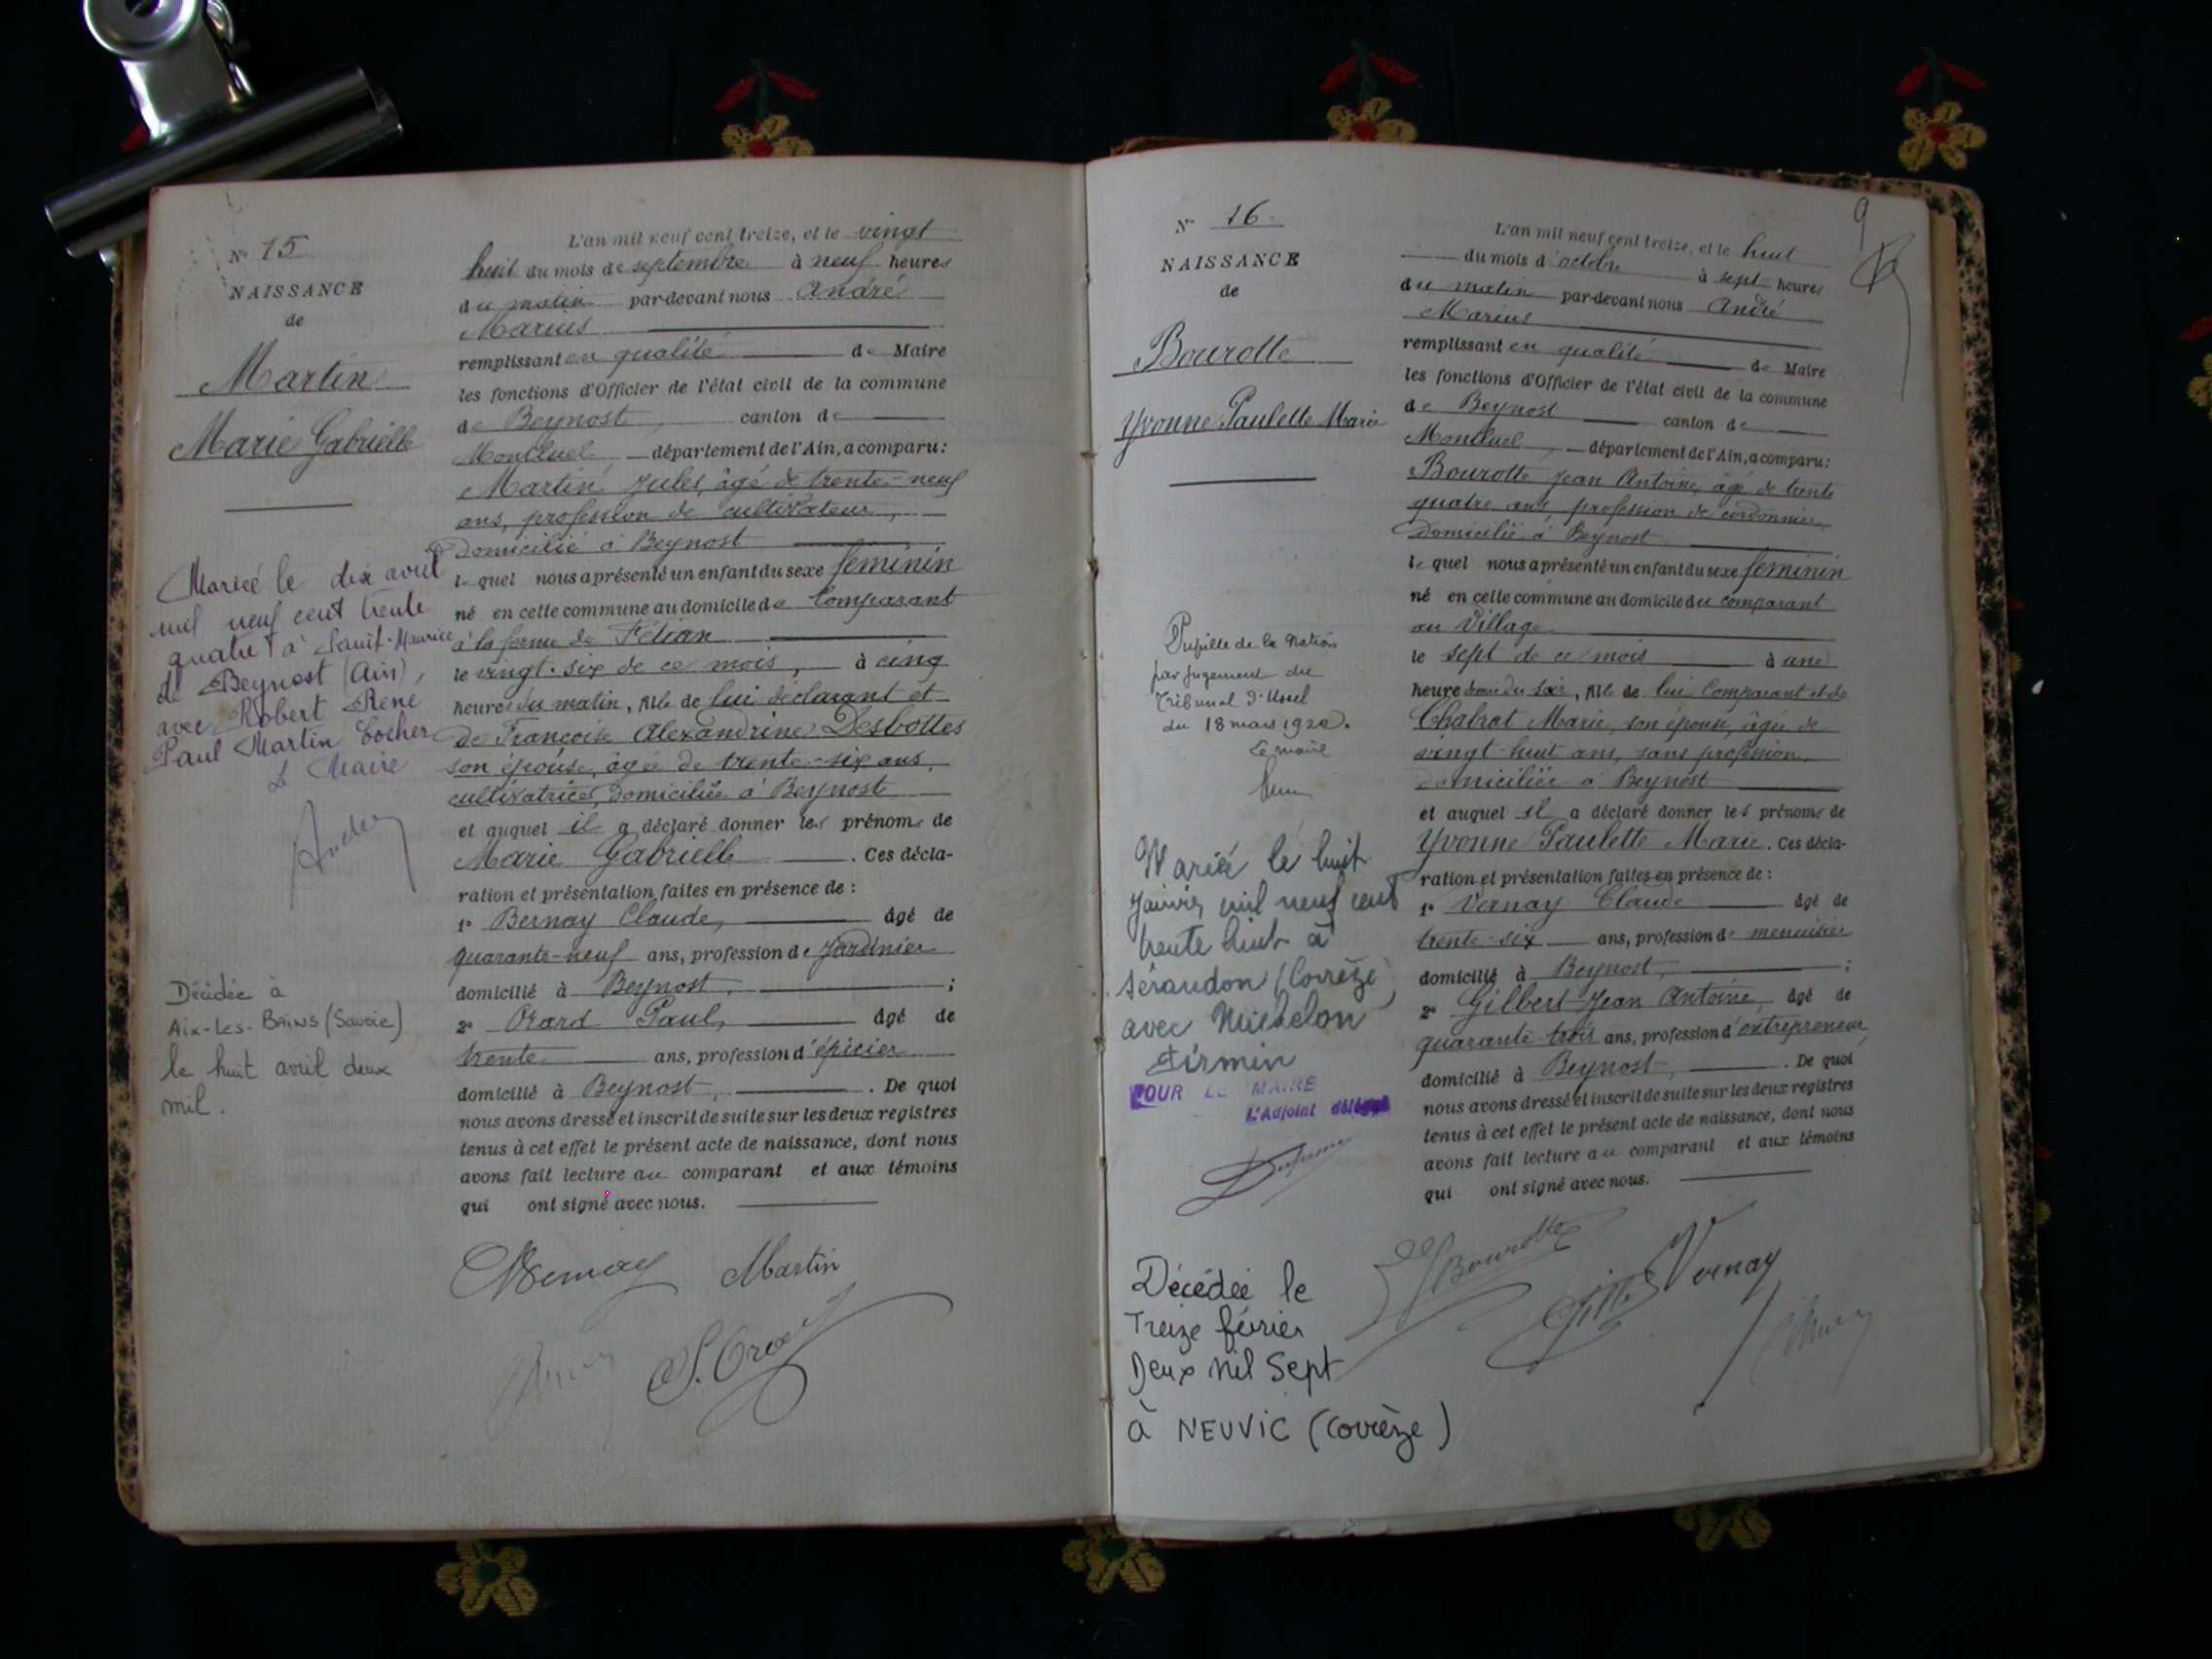 N° 15
NAISSANCE
de
Martin
Marie Gabrielle
Mariée le dix avril
mil neuf cent trente
quatre à Saint-Maurice
de Beynost (Ain),
avec Robert René
Paul Martin Cocher
Le Maire
Décédée à
Aix-Les-BAiNS (Savoie)
le huit avril deux
mil.
L'an mil neuf cent treize, et le vingt
huit du mois de septembre à neuf heures
du matin par-devant nous André
Marius
remplissant en qualité de Maire
les fonctions d'Officier de l'état civil de la commune
de Beynost, canton de
Montluel département de l'Ain, a comparu:
Martin Jules, âgé de trente-neuf
ans, profession de cultivateur,
domicilié à Beynost
lequel nous a présenté un enfant du sexe féminin
né en cette commune au domicile du Comparant
à la ferme de Fétian
le vingt-six de ce mois, à cinq
heures du matin, fille de lui déclarant et
de Françoise Alexandrine Desbottes
son épouse, âgée de trente-six ans,
cultivatrice, domiciliée à Beynost
et auquel il a déclaré donner les prénoms de
Marie Gabrielle. Ces décla-
ration et présentation faites en présence de :
1° Bernay Claude, âgé de
quarante-neuf ans, profession de jardinier
domicilié à Beynost, ;
2° Orard Paul, âgé de
trente ans, profession d'épicier
domicilié à Beynost, . De quoi
nous avons dressé et inscrit de suite sur les deux registres
tenus à cet effet le présent acte de naissance, dont nous
avons fait lecture au comparant et aux témoins
qui ont signé avec nous.
Martin
9
N° 16
NAISSANCE
de
Bourotte
Yvonne Paulette Marie
Pupille de la Nation
par jugement du
Tribunal d'Ussel
du 18 mars 1920.
Le maire
Mariée le huit
Janvier mil neuf cent
trente huit à
Sérandon (Corrèze)
avec Michelon
Firmin
POUR LE MAIRE
L'Adjoint délégué
Décédée le
Treize février
Deux Mil Sept
à NEUVIC (Corrèze)
L'an mil neuf cent treize, et le huit
du mois d'octobre à sept heures
du matin par-devant nous André
Marius
remplissant en qualité de Maire
les fonctions d'Officier de l'état civil de la commune
de Beynost canton de
Montluel, département de l'Ain, a comparu:
Bourotte Jean Antoine, âgé de trente
quatre ans, profession de cordonnier,
domicilié à Beynost
lequel nous a présenté un enfant du sexe féminin
né en cette commune au domicile du comparant
au Village
le sept de ce mois à une
heure demie du soir, fille de lui Comparant et de
Chabrat Marie, son épouse, âgée de
vingt-huit ans, sans profession,
domiciliée à Beynost
et auquel il a déclaré donner les prénoms de
Yvonne Paulette Marie. Ces décla-
ration et présentation faites en présence de :
1° Vernay Claude âgé de
trente-six ans, profession de menuisier
domicilié à Beynost, ;
2° Gilbert Jean Antoine, âgé de
quarante-trois ans, profession d'entrepreneur,
domicilié à Beynost, . De quoi
nous avons dressé et inscrit de suite sur les deux registres
tenus à cet effet le présent acte de naissance, dont nous
avons fait lecture au comparant et aux témoins
qui ont signé avec nous.
Bourotte
Vernay